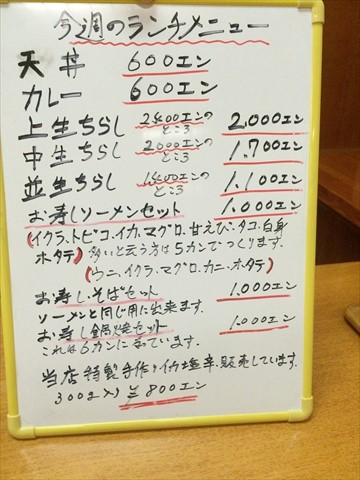 今週のランチメニュー
天丼 600エン
カレー 600エン
上生ちらし 2400エンのところ 2.000エン
中生ちらし 2000エンのところ 1.700エン
並生ちらし 1400エンのところ 1.100エン
お寿しソーメンセット 1.000エン
(イクラ、トビコ、イカ、マグロ、甘えび、タコ、白身
ホタテ) 多いと云う方は5カンでつくります。
(ウニ、イクラ、マグロ、カニ、ホタテ)
お寿しそばセット 1.000エン
ソーメンと同じ用に出来ます。
お寿し鍋焼セット 1.000エン
これは6カンになっています。
当店特製手作りイカ塩辛、販売しています。
300g入り 800エン